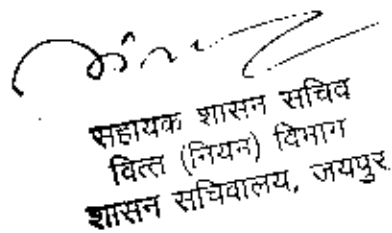 सहायक शासन सचिव
वित्त (नियन) विभाग
शासन सचिवालय, जयपुर